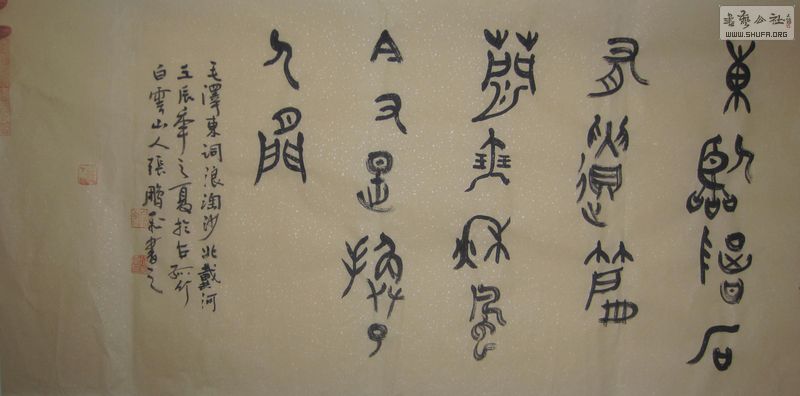 書藝公社
WWW.SHUFA.ORG
東臨碣石
有遺篇
蕭瑟秋風
今又是換了
人間
毛澤東詞浪淘沙北戴河
壬辰年之夏於古孤竹
白雲山人張鵬飛書之